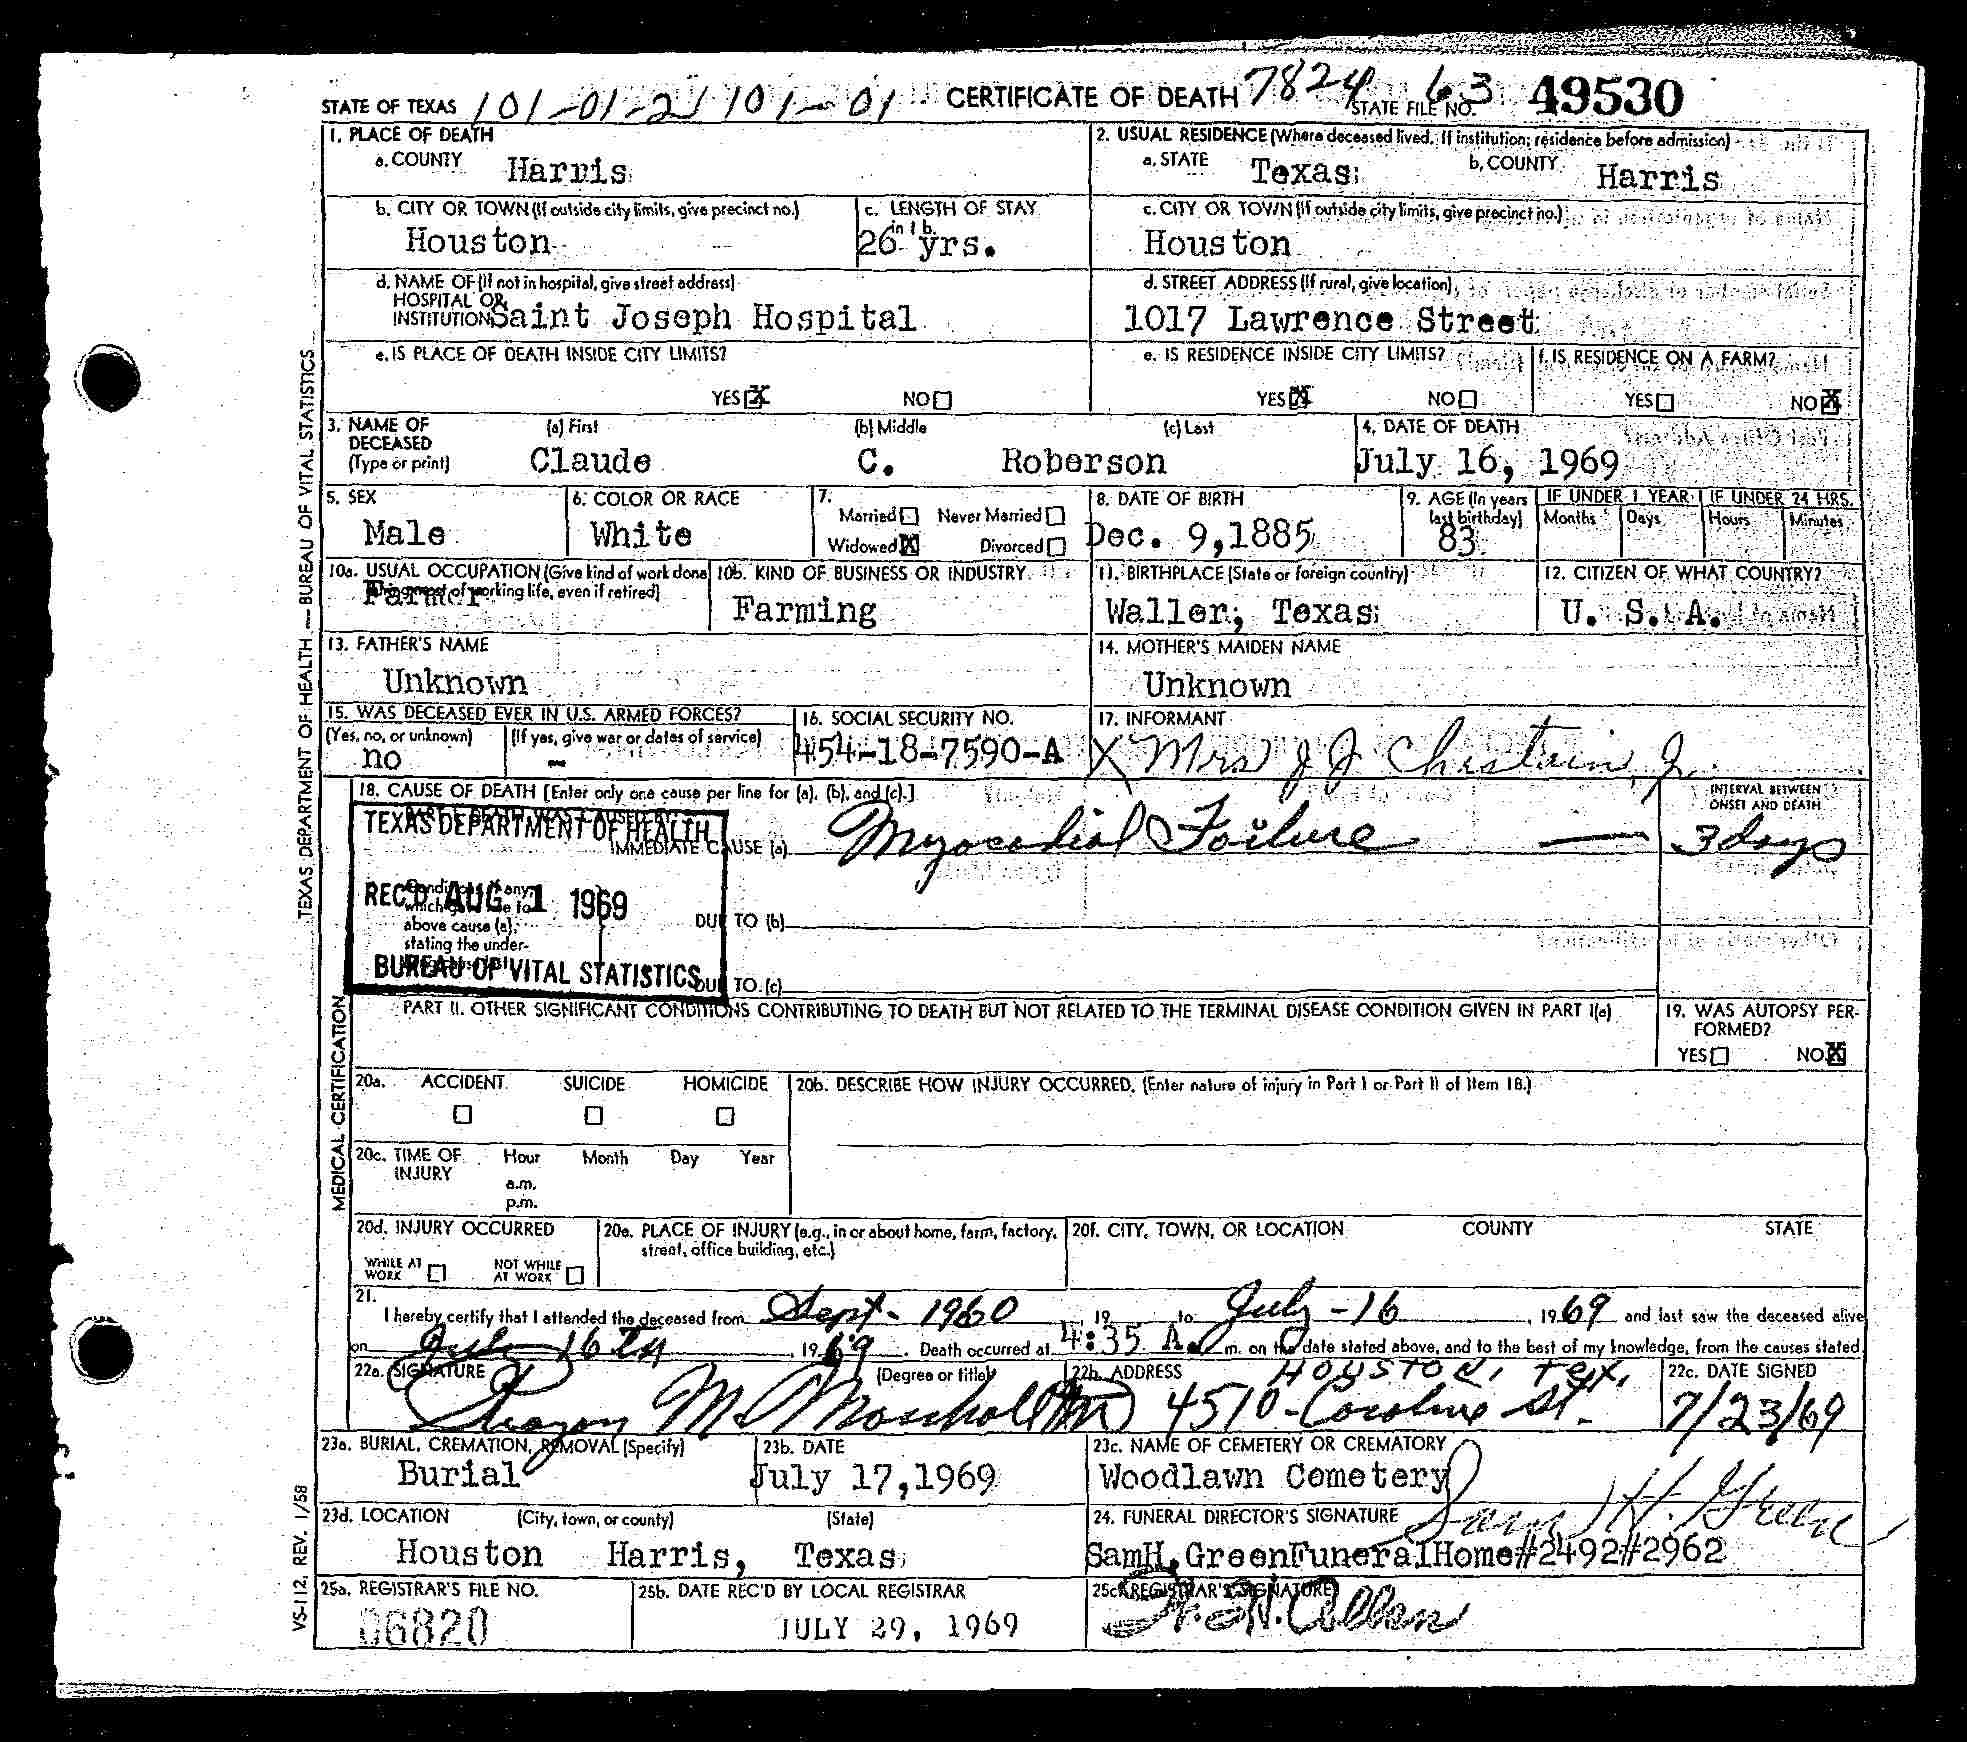 STATE OF TEXAS 101-01-2 101-01 CERTIFICATE OF DEATH 7824 STATE FILE NO. 63 49530
1. PLACE OF DEATH
a. COUNTY Harris
2. USUAL RESIDENCE (Where deceased lived. If institution; residence before admission)
a. STATE Texas b. COUNTY Harris
b. CITY OR TOWN (If outside city limits, give precinct no.) Houston
c. LENGTH OF STAY in 1 b. 26 yrs.
c. CITY OR TOWN (If outside city limits, give precinct no.) Houston
d. NAME OF (If not in hospital, give street address)
HOSPITAL OR
INSTITUTION Saint Joseph Hospital
d. STREET ADDRESS (If rural, give location)
1017 Lawrence Street
e. IS PLACE OF DEATH INSIDE CITY LIMITS?
YES X NO
e. IS RESIDENCE INSIDE CITY LIMITS?
YES X NO
f. IS RESIDENCE ON A FARM?
YES NO X
3. NAME OF DECEASED (Type or print)
(a) First (b) Middle (c) Last
Claude C. Roberson
4. DATE OF DEATH
July 16, 1969
5. SEX
Male
6. COLOR OR RACE
White
7. Married Never Married
Widowed X Divorced
8. DATE OF BIRTH
Dec. 9,1885
9. AGE (In years last birthday)
83
IF UNDER 1 YEAR IF UNDER 24 HRS.
Months Days Hours Minutes
10a. USUAL OCCUPATION (Give kind of work done during most of working life, even if retired)
Farmer
10b. KIND OF BUSINESS OR INDUSTRY
Farming
11. BIRTHPLACE (State or foreign country)
Waller, Texas
12. CITIZEN OF WHAT COUNTRY?
U. S. A.
13. FATHER'S NAME
Unknown
14. MOTHER'S MAIDEN NAME
Unknown
15. WAS DECEASED EVER IN U.S. ARMED FORCES?
(Yes, no, or unknown) (If yes, give war or dates of service)
no -
16. SOCIAL SECURITY NO.
454-18-7590-A
17. INFORMANT
X Mrs J J Chastain, Jr.
18. CAUSE OF DEATH [Enter only one cause per line for (a), (b), and (c).]
PART I. DEATH WAS CAUSED BY:
IMMEDIATE CAUSE (a) Myocadial Failure
INTERVAL BETWEEN ONSET AND DEATH
3 days
Conditions, if any,
which gave rise to
above cause (a),
stating the under-
DUE TO (b)
DUE TO (c)
TEXAS DEPARTMENT OF HEALTH
REC'D AUG 1 1969
BUREAU OF VITAL STATISTICS
PART II. OTHER SIGNIFICANT CONDITIONS CONTRIBUTING TO DEATH BUT NOT RELATED TO THE TERMINAL DISEASE CONDITION GIVEN IN PART I(a)
19. WAS AUTOPSY PER-
FORMED?
YES NO X
20a. ACCIDENT SUICIDE HOMICIDE
20b. DESCRIBE HOW INJURY OCCURRED. (Enter nature of injury in Part I or Part II of Item 18.)
20c. TIME OF INJURY Hour Month Day Year
a.m.
p.m.
20d. INJURY OCCURRED
WHILE AT WORK NOT WHILE AT WORK
20e. PLACE OF INJURY (e.g., in or about home, farm, factory, street, office building, etc.)
20f. CITY, TOWN, OR LOCATION COUNTY STATE
21.
I hereby certify that I attended the deceased from Sept - 1960, 19 to July - 16, 1969 and last saw the deceased alive
on July 16 Th, 1969. Death occurred at 4:35 A. m. on the date stated above, and to the best of my knowledge, from the causes stated.
22a. SIGNATURE (Degree or title)
22b. ADDRESS HOUSTON, Tex.
4510 - Caroline St.
22c. DATE SIGNED
7/23/69
23a. BURIAL, CREMATION, REMOVAL (Specify)
Burial
23b. DATE
July 17,1969
23c. NAME OF CEMETERY OR CREMATORY
Woodlawn Cemetery
23d. LOCATION (City, town, or county) (State)
Houston Harris, Texas
24. FUNERAL DIRECTOR'S SIGNATURE Sam H. Green
SamH.GreenFuneralHome#2492#2962
25a. REGISTRAR'S FILE NO.
06820
25b. DATE REC'D BY LOCAL REGISTRAR
JULY 29, 1969
25c. REGISTRAR'S SIGNATURE
TEXAS DEPARTMENT OF HEALTH — BUREAU OF VITAL STATISTICS
MEDICAL CERTIFICATION
VS-112, REV. 1/58